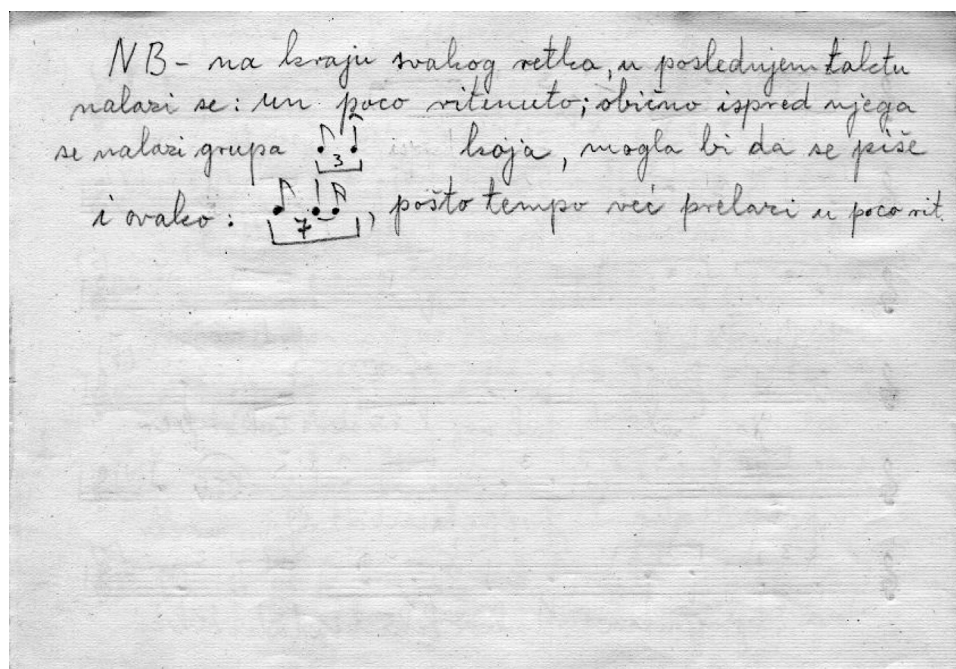 NB - na kraju svakog retka, u poslednjem taktu
nalazi se: un poco ritenuto; obično ispred njega
se nalazi grupa 3 koja, mogla bi da se piše
i ovako: 7, pošto tempo već prelazi u poco rit.